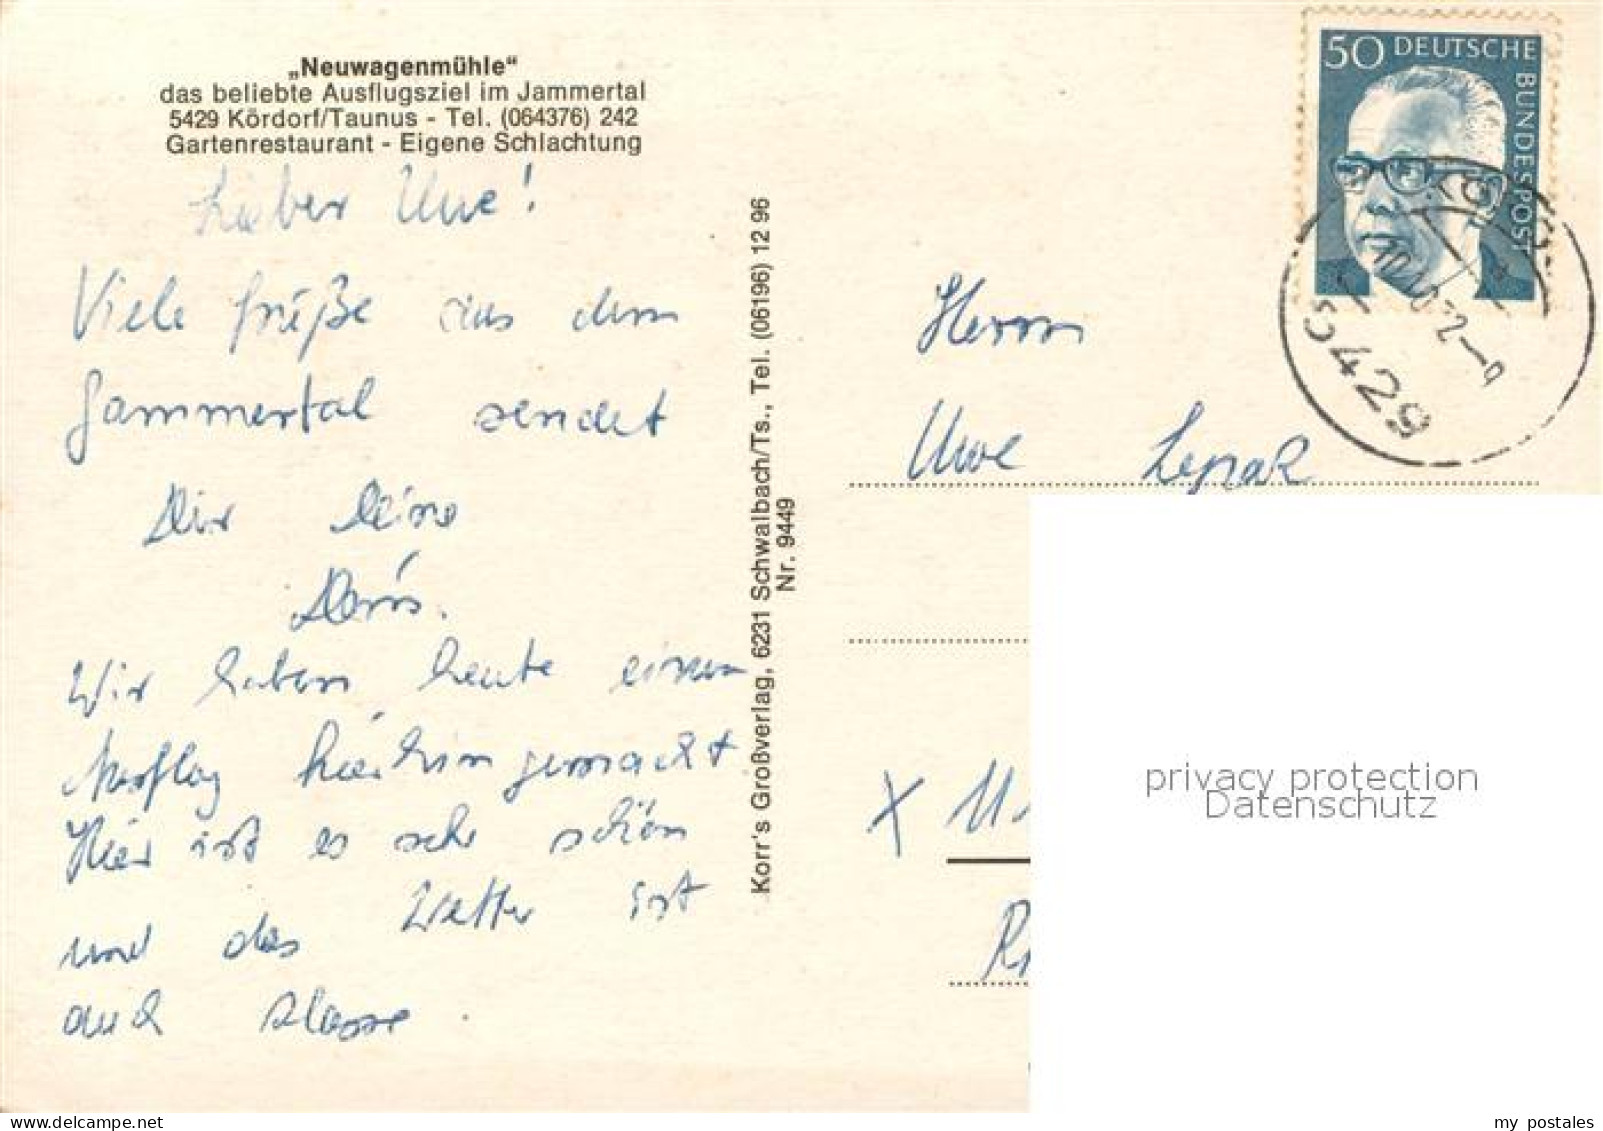 „Neuwagenmühle“
das beliebte Ausflugsziel im Jammertal
5429 Kördorf/Taunus - Tel. (064376) 242
Gartenrestaurant - Eigene Schlachtung
Lieber Uwe!
Viele Grüße aus dem
Jammertal sendet
Dir Deine
Doris.
Wir haben heute einen
Ausflug hierhin gemacht
Hier ist es sehr schön
und das Wetter ist
auch klasse.
Korr's Großverlag, 6231 Schwalbach/Ts., Tel. (06196) 12 96
Nr. 9449
50 DEUTSCHE
BUNDESPOST
5429
Herrn
Uwe Lepak
X
privacy protection
Datenschutz
delcampe.net
my postales